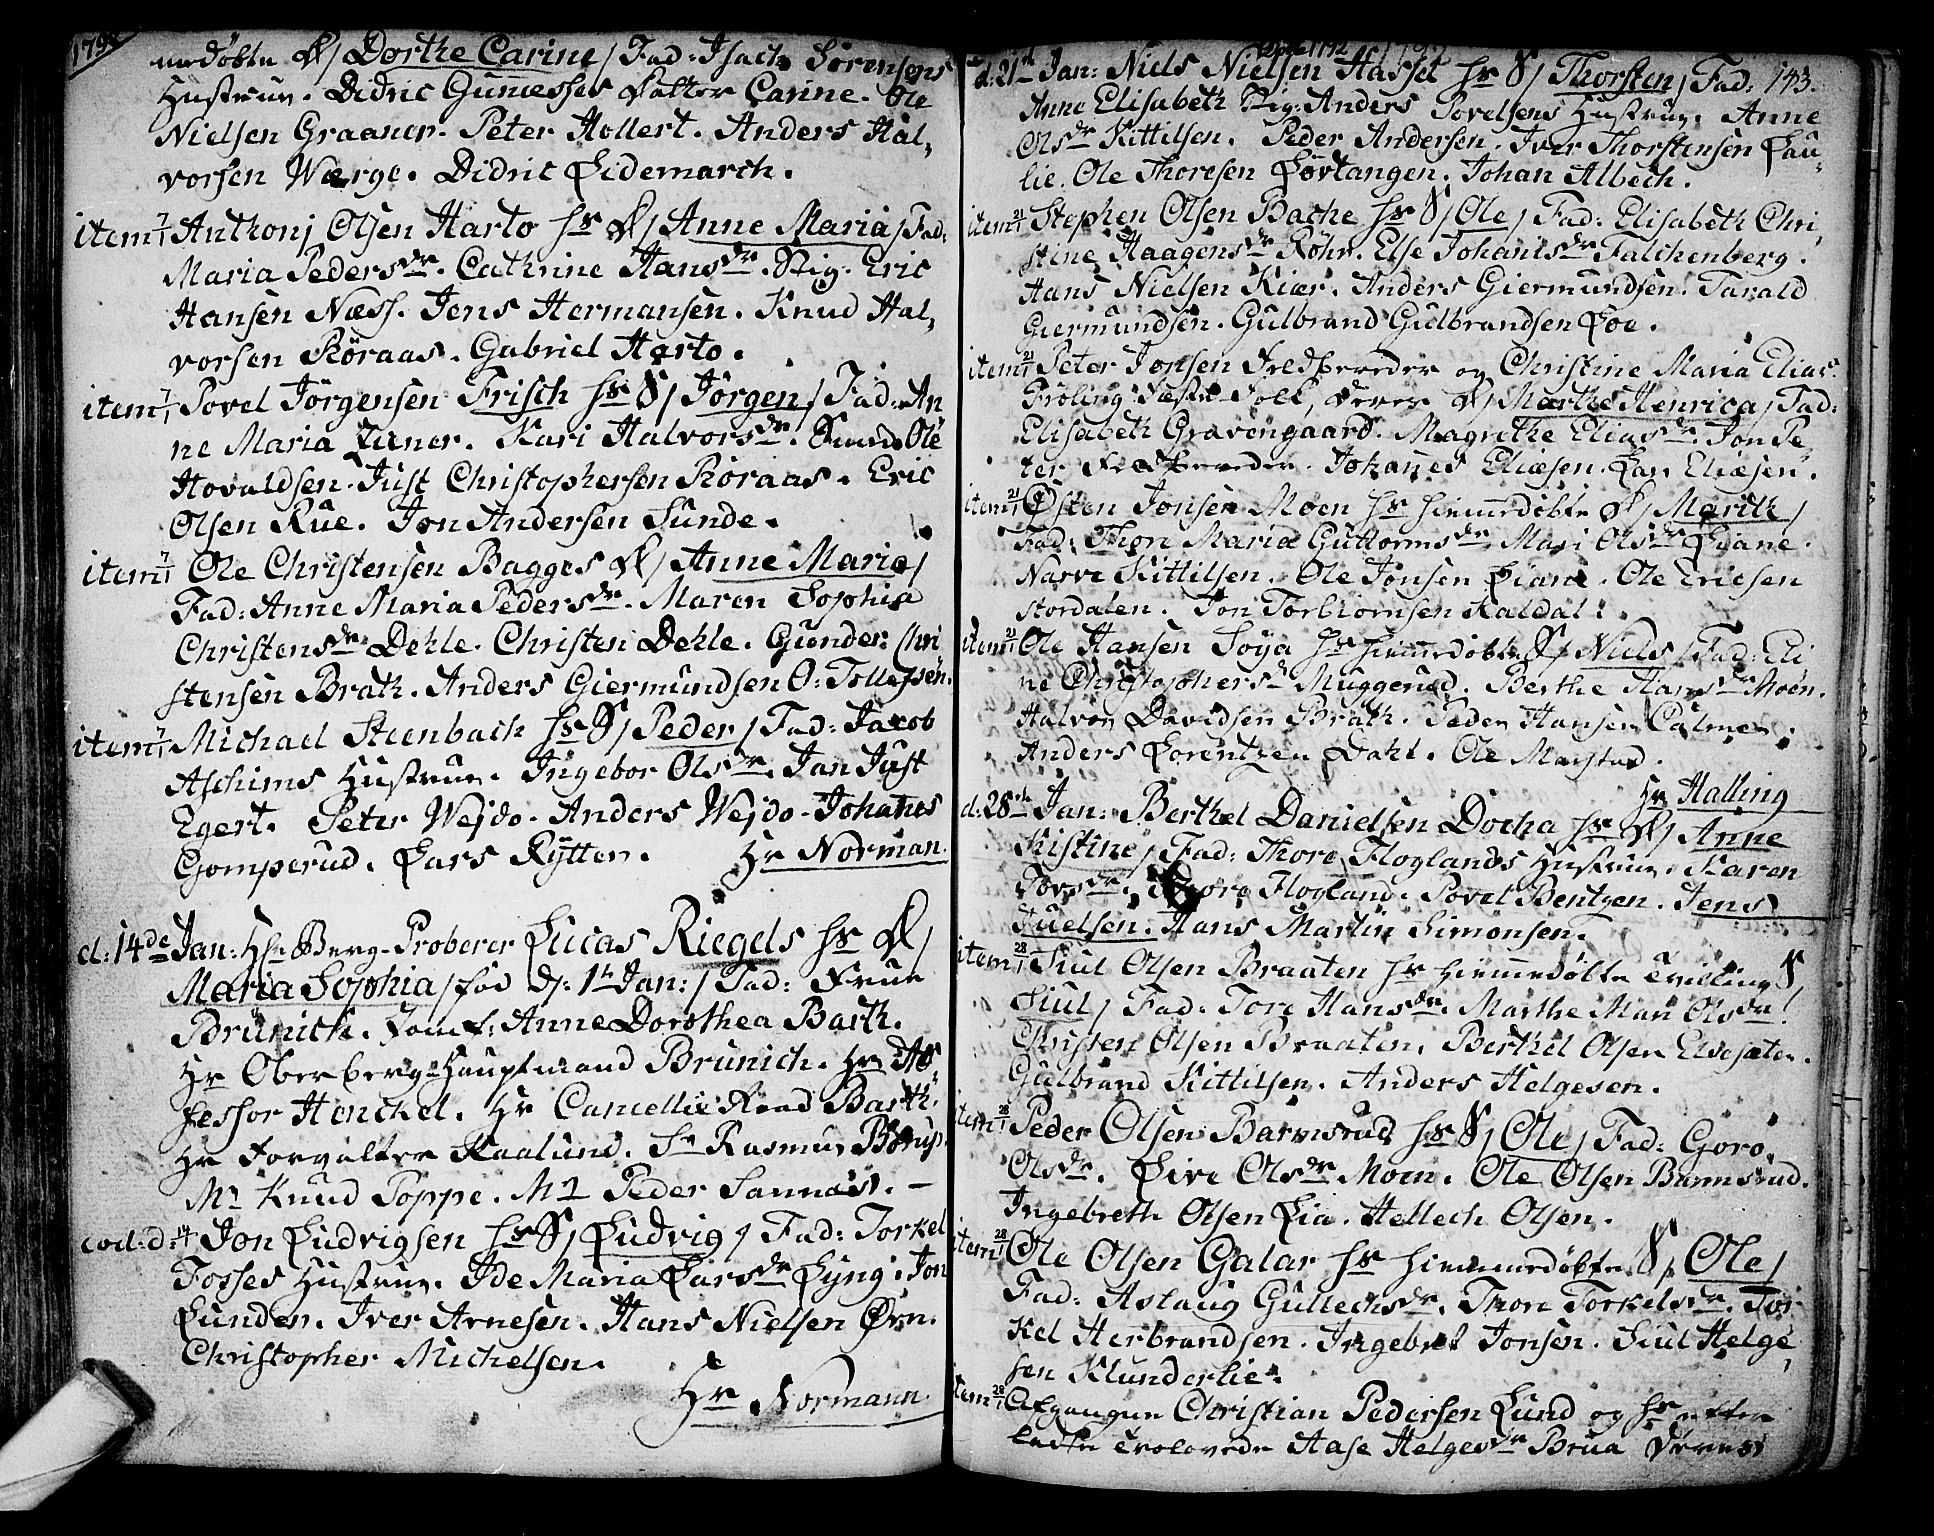 medöbte D/ Dorthe Carine / Fad: Isach Sörensens
Hustrue. Didric Gunnesses datter Carine. Ole
Nielsen Graaner. Peter Hollert. Anders Hal,
vorsen Werge. Didric Lidemarck.
item 7/1 Anthonj Olsen Harto hs D/ Anne Maria / Fad:
Maria Pedersdr. Cathrine Hansdr. Stig. Eric
Hansen Næss. Jens Hermansen. Knud Hal,
vorsen Röraas. Gabriel Harto.
item 7/1 Povel Jörgensen Frisch hs S/ Jörgen / Fad: An
ne Maria Zimer. Kari Halvorsdr. Ole
Hovaldsen. Just Christophersen Röraas. Eric
Olsen Rue. Jon Andersen Sunde.
item 7/1 Ole Christensen Bagges D/ Anne Maria /
Fad: Anne Maria Pedersdr. Maren Sophia
Christensdr Dehle. Christen Dehle. Gunder Chri
stensen Brath. Anders Giermundsen O: Tollefsen.
item 7/1 Michael Steenbach hs S/ Peder / Fad: Jacob
Aschims Hustrue. Ingebor Olsdr. Jan Just
Egert. Peter Wejdo. Anders Wejdo. Johanes
Gomperud. Lars Rytter. Hr Norman.
d: 14de Jan: Hr. Berg-Proberer Lucas Riegels hs D/
Maria Sophia / föd d: 1te Jan: / Fad: Frue
Brünich. Jomf: Anne Dorothea Barth.
Hr Oberberg-Hauptmand Brünich. Hr As
sessor Henckel. Hr Cancellie Raad Barth.
Hr Forvalter Kaalund. Sr Rasmus Borup.
Mr Knud Poppe. Mr Peder Sannes. –
eod: d: 14 Jon Ludvigsen hs S/ Ludvig / Fad: Torkel
Fosses Hustrue. Ide Maria Larsdr Lyng. Jon
Lunden. Iver Arnesen. Hans Nielsen Örn.
Christopher Michelsen.
Hr Normann.
1792
143.
d: 21de Jan: Niels Nielsen Hassel hs S/ Thorsten / Fad:
Anne Elisabeth Stig. Anders Povelsens Hustrue. Anne
Olsdr Kittilsen. Peder Andersen. Iver Thorstensen Lau-
lie. Ole Thoresen Lövtangen. Johan Albech.
item 21/1 Stephen Olsen Bache hs S/ Ole / Fad: Elisabeth Chri,
stine Haagensdr Röhr. Else Johanisdr Falchenberg.
Hans Nielsen Kiær. Anders Giermundsen. Tarald
Giermundsen. Gulbrand Gulbrandsen Loe.
item 21/1 Peter Jonsen Feldbereder og Christine Maria Elias
Fröling deres D/ Marthe Henrica / Fad:
Elisabeth Gravengaard. Magrethe Eliasdr. Jon Pe-
ter Feldbereder. Johannes Eliæsen. Lars Eliæsen.
item 21/1 Östen Jonsen Moen hs hiemmedöbte D/ Marith /
Fad: Thore Maria Guttormsdr. Mari Olsdr Liane.
Narve Kittilsen. Ole Jonsen Liane. Ole Ericsen
stordalen. Jon Torbiornsen Kaldal.
item 21/1 Ole Hansen Söya hs hiemmedöbte S/ Niels / Fad: Eli
ne Christophersdr Muggerud. Berthe Hansdr Moen.
Halvor Davidsen Brath. Peder Hansen Calmer.
Anders Lorentzen Dahl. Ole Marstad.
Hr Halling
d: 28de Jan: Berthel Danielsen Docha hs D/ Anne
Kistine / Fad: Thore Floglands Hustrue. Karen
Povelsdr. Thore Flogland. Povel Bentzen. Jens
Juelsen. Hans Martin Simonsen.
item 28/1 Siul Olsen Braaten hs hiemmedöbte Tvilling S,
Siul / Fad: Tore Hansdr. Marthe Mari Olsdr.
Christen Olsen Braaten. Berthel Olsen Elvesæter.
Gulbrand Kittilsen. Anders Helgesen.
item 28/1 Peder Olsen Barmsrud hs S/ Ole / Fad: Goro
Olsdr. Live Olsdr Moen. Ole Olsen Barmsrud.
Ingebreth Olsen Lia. Hellech Olsen.
item 28/1 Ole Olsen Galar hs hiemmedöbte S/ Ole /
Fad: Aslaug Gullechsdr. Thore Torkelsdr. Tor
kel Herbrandsen. Ingebret Jonsen. Siul Helge
sen Klunderlie.
item 28/1 Afgangne Christian Pedersen Lund og hs efter
ladte Trolovede Aase Helgesdr Brua deres